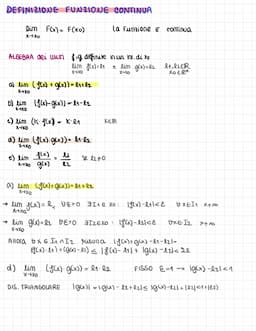 DEFINIZIONE FUNZIONE CONTINUA
lim x→x0 F(x) = F(x0) la funzione è continua
ALGEBRA dei limiti f,g definite in un x0
lim x→x0 f(x)=l1 e lim x→x0 g(x)=l2 l1,l2∈R
x0∈R*
a) lim x→x0 (f(x)+g(x))=l1+l2
b) lim x→x0 (f(x)-g(x))=l1-l2
c) lim x→x0 (K·f(x)) = K·l1 K∈R
d) lim x→x0 (f(x)·g(x))= l1·l2
e) lim x→x0 f(x)/g(x) = l1/l2 se l2≠0
a) lim x→x0 (f(x)+g(x))=l1+l2
→ lim x→x0 f(x)=l1 ∀ε>0 |f(x)-l1|<ε ∀x∈I1 x≠x0
→ lim x→x0 g(x)=l2 ∀ε>0 |g(x)-l2|<ε ∀x∈I2 x≠x0
ALLORA ∀x∈I1∩I2 |f(x)+g(x)-l1-l2|=
|f(x)-l1+(g(x)-l2)| ≤ |f(x)-l1|+|g(x)-l2| < 2ε
d) lim x→x0 (f(x)·g(x))= l1·l2 FISSO ε=1 → |g(x)-l2|<1
DIS. TRIANGOLARE |g(x)|=|g(x)-l2+l2|≤|g(x)-l2|+|l2|<1+|l2|